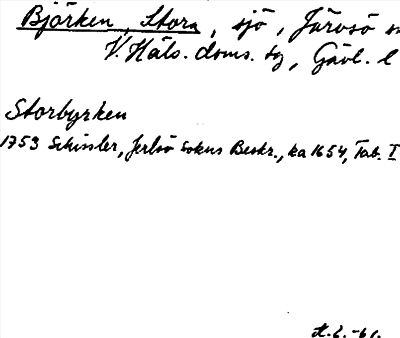 Björken, Stora, sjö, Järvsö
V. Häls. doms. sg, Gävl. l
Storbyrken
1753 Schissler, Jerlsö Sokns Beskr., ka 1654, Tab. I